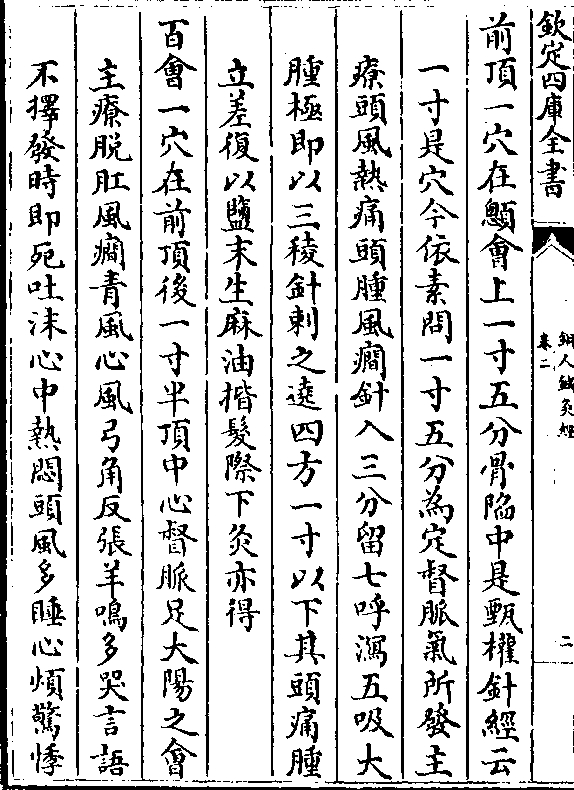 欽定四庫全書
銅人鍼灸經
卷二
二
前頂一穴在顖會上一寸五分骨陷中是甄權針經云
一寸是穴今依素問一寸五分為定督脈氣所發主
療頭風熱痛頭腫風癎針入三分留七呼瀉五吸大
腫極即以三稜針刺之遶四方一寸以下其頭痛腫
立差復以鹽末生麻油揩髮際下灸亦得
百會一穴在前頂後一寸半頂中心督脈足大陽之會
主療脫肛風癎青風心風弓角反張羊鳴多哭言語
不擇發時即死吐沫心中熱悶頭風多睡心煩驚悸